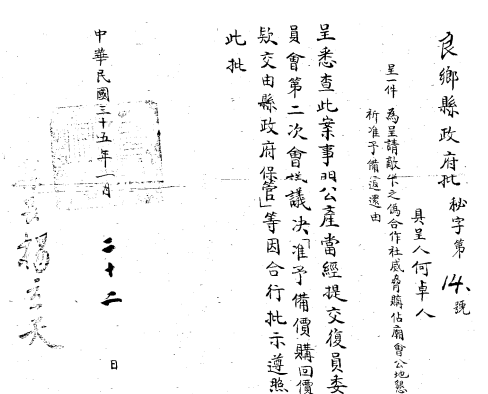 良鄉縣政府批 秘字第14號
具呈人何卓人
呈一件 為呈請敵作之偽合作社威脅購佔廟會公地懇
祈准予備價還由
呈悉查此案事關公產當經提交復員委
員會第二次會議議決「准予備價購回價
款交由縣政府保管」等因合行批示遵照
此批
中華民國三十五年一月 二十二 日
縣長